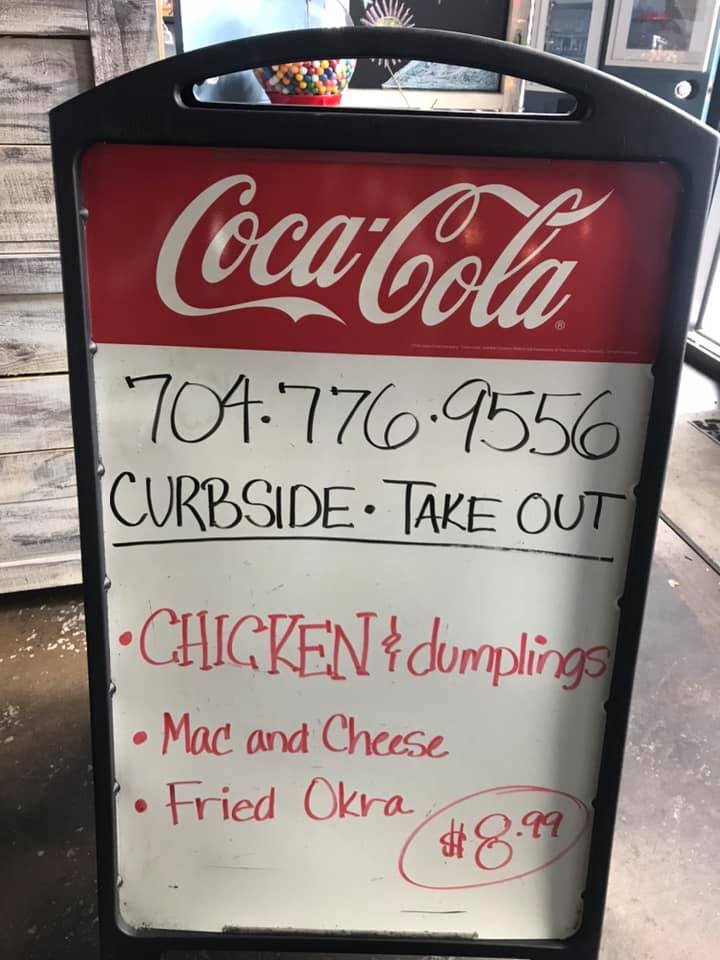 Coca-Cola®
704.776.9556
CURBSIDE • TAKE OUT
• CHICKEN & dumplings
• Mac and Cheese
• Fried Okra
$8.99